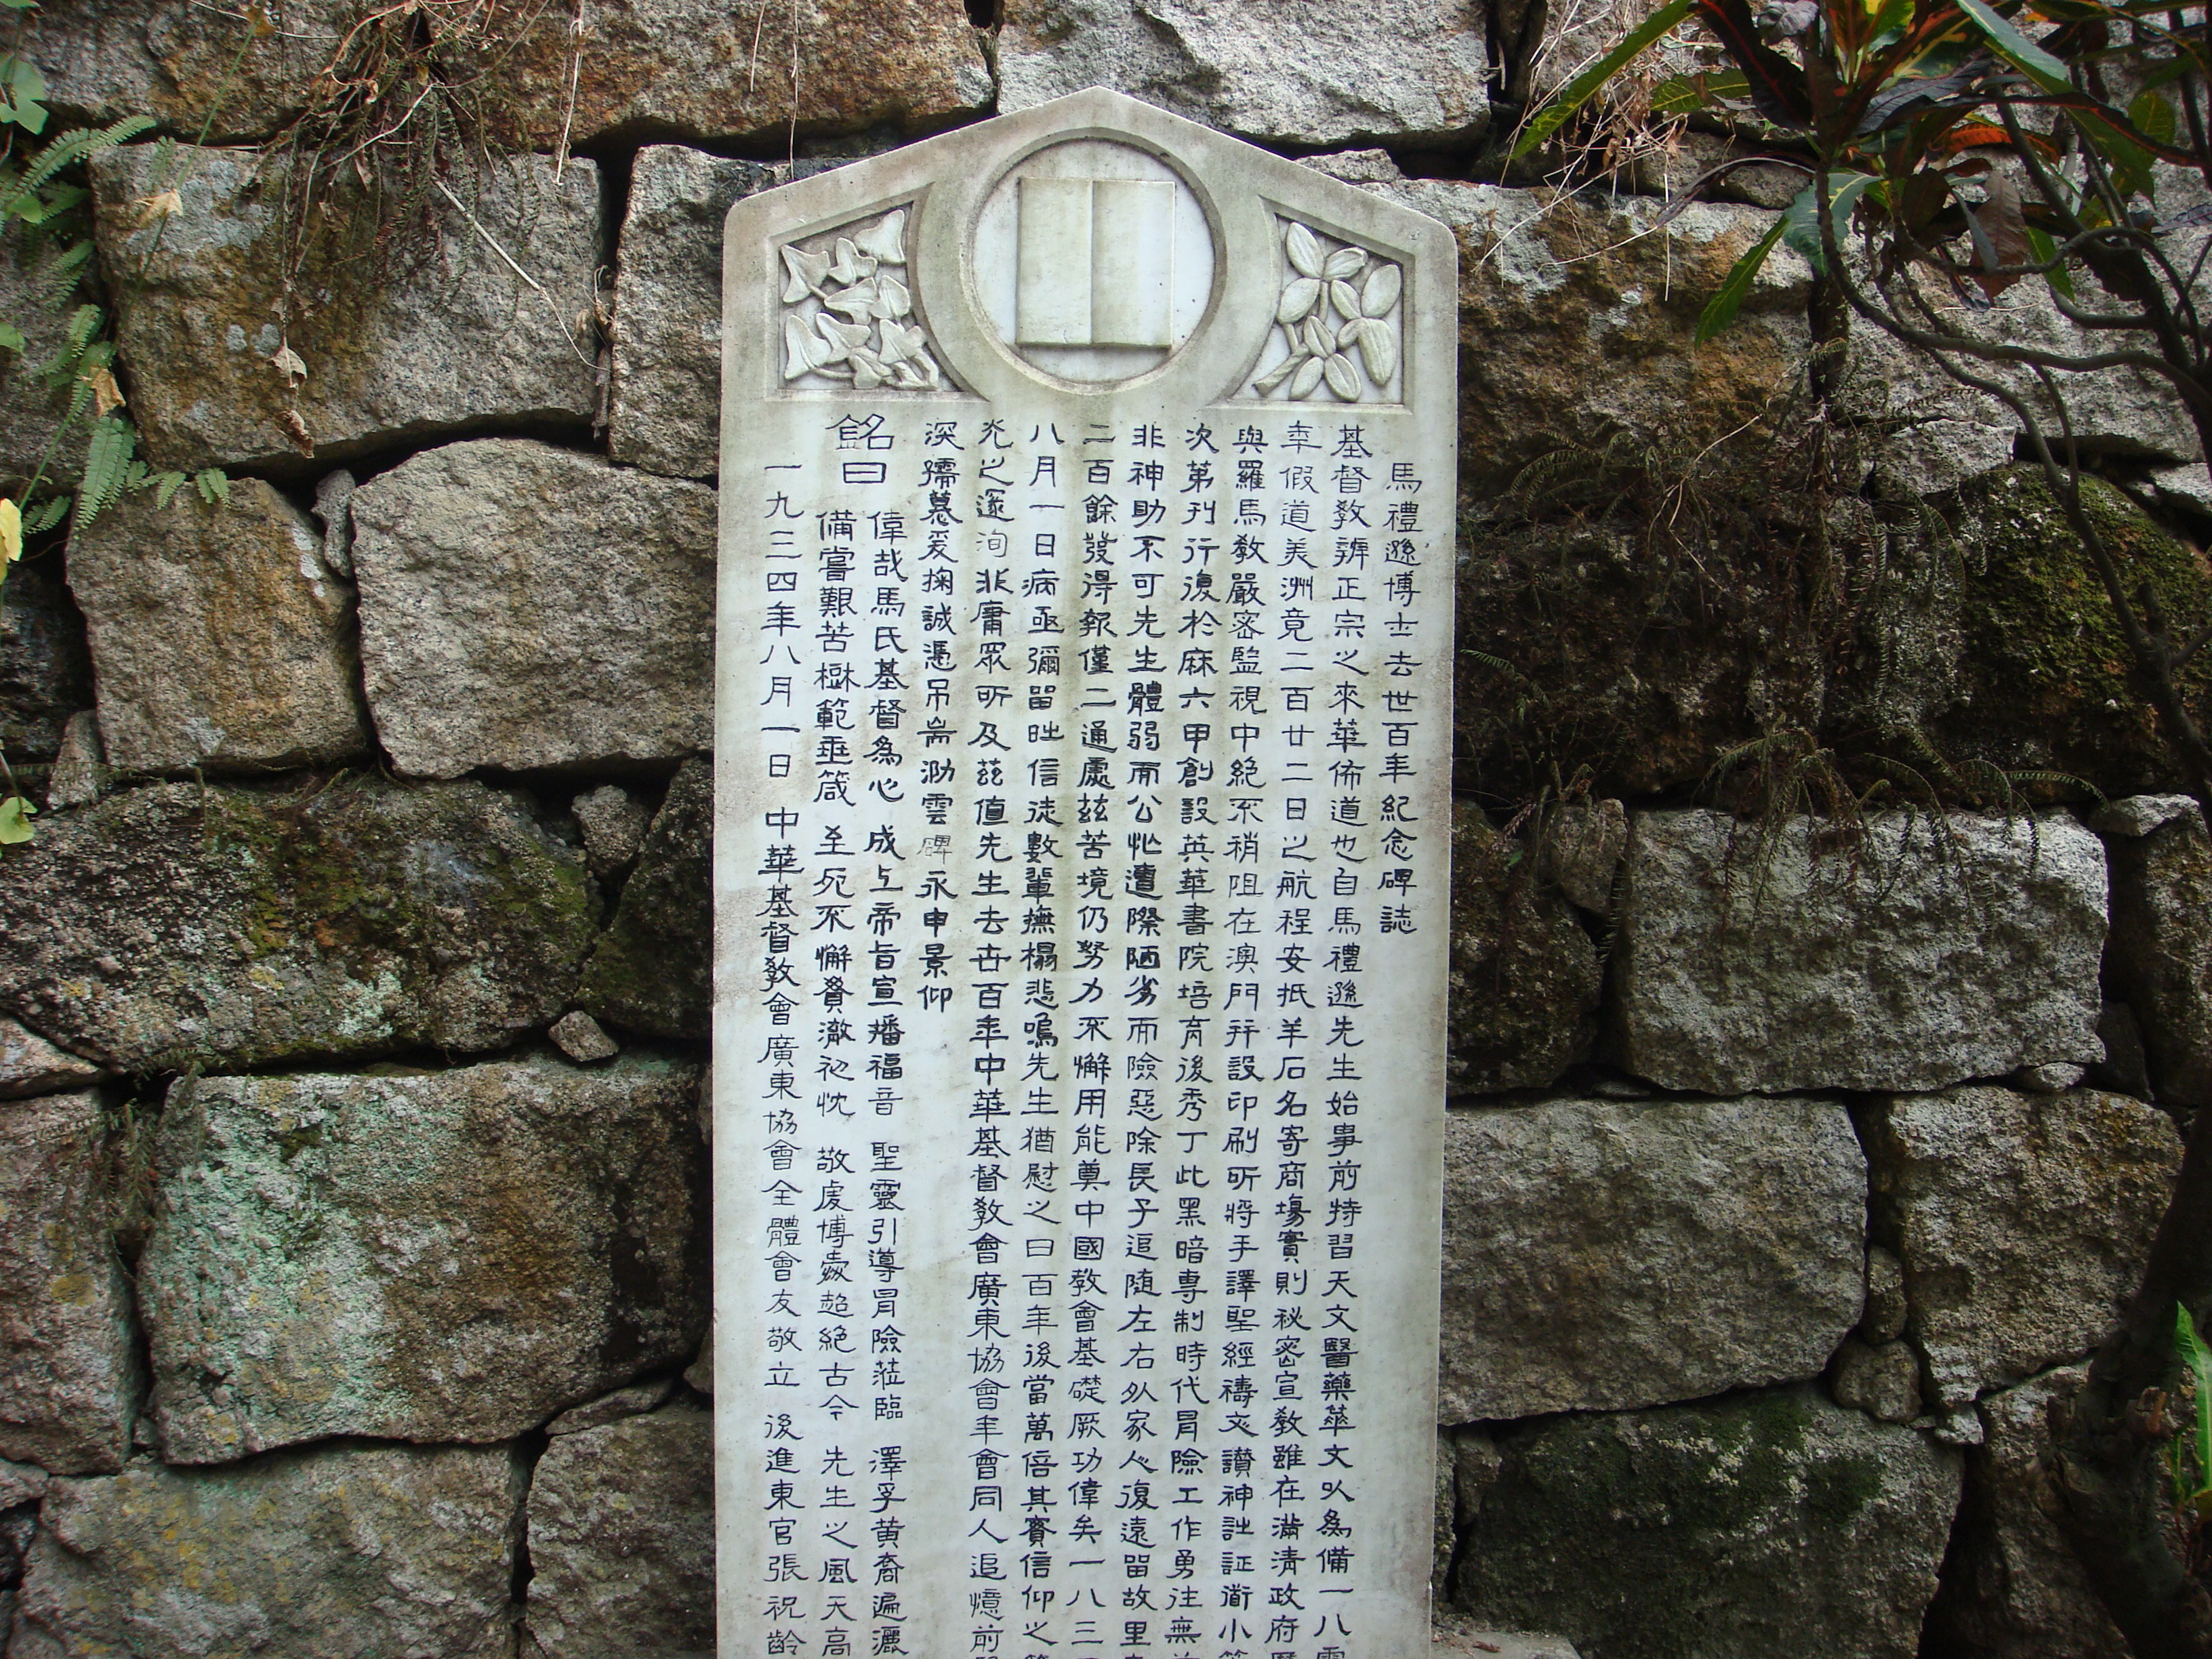 馬禮遜博士去世百年紀念碑誌
基督教辨正宗之來華佈道也自馬禮遜先生始事前特習天文醫藥華文以為備一八零
年假道美洲竟二百廿二日之航程安抵羊石名寄商場實則秘密宣教雖在滿清政府
與羅馬教嚴密監視中絕不稍阻在澳門幷設印刷所將手譯聖經禱文讚神詩証道小
次第刊行復於麻六甲創設英華書院培育後秀丁此黑暗專制時代冒險工作勇往無
非神助不可先生體弱而公忙遭際陋劣而險惡除長子追随左右外家人復遠留故里
二百餘發得報僅二通處茲苦境仍努力不懈用能奠中國教會基礎厥功偉矣一八三
八月一日病亟彌留時信徒數輩撫榻悲鳴先生猶慰之曰百年後當萬倍其賽信仰之
之邃洵非庸眾所及茲值先生去世百年中華基督教會廣東協會年會同人追憶前
深孺慕爰掬誠憑吊耑泐雲碑永申景仰
銘曰
偉哉馬氏基督為心 成上帝旨宣播福音 聖靈引導冒險蒞臨 澤孚黄裔遍灑
備嘗艱苦楙範垂箴 至死不懈賚澈初忱 敬虔博愛超絕古今 先生之風天高
一九三四年八月一日 中華基督教會廣東協會全體會友敬立 後進東官張祝齡